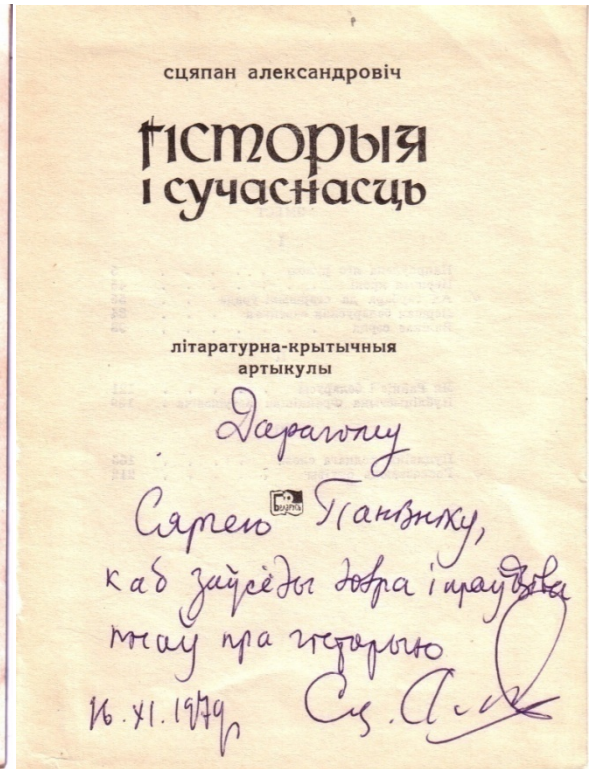 сцяпан александровіч
гісторыя
і сучаснасць
літаратурна-крытычныя
артыкулы
Дарагому
Сяргею Панізніку,
Беларусь
каб заўсёды добра і праўдзіва
пісаў пра гісторыю
16.XI.1979г. Сц. Ал